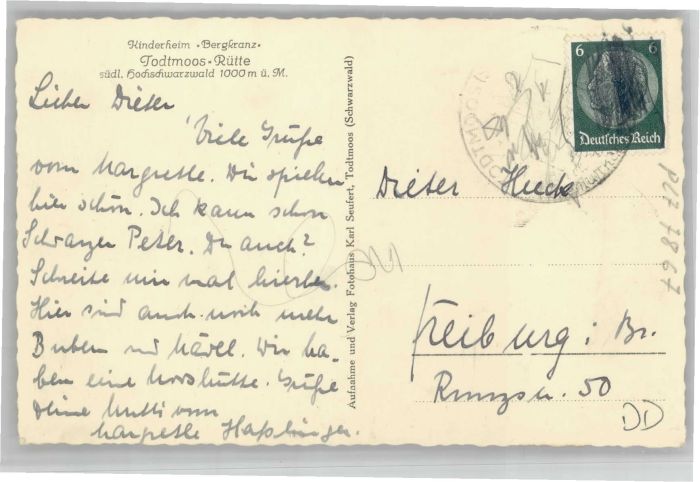 Kinderheim •Bergkranz•
Todtmoos-Rütte
südl. Hochschwarzwald 1000 m ü. M.
Lieber Dieter
Viele Grüße
vom Margretle. Wir spielen
hier schön. Ich kann schon
Schwarzer Peter. Du auch?
Schreibe mir mal hierher.
Hier sind auch noch mehr
Buben und Mädel. Wir ha-
ben eine Mooshütte. Grüße
Deine Mutti vom
Margretle Haßlinger.
Aufnahme und Verlag Fotohaus Karl Seufert, Todtmoos (Schwarzwald)
6 6
Deutsches Reich
TODTMOOS
Dieter Hueck
Freiburg i. Br.
Runzstr. 50
PLZ 7867
DD